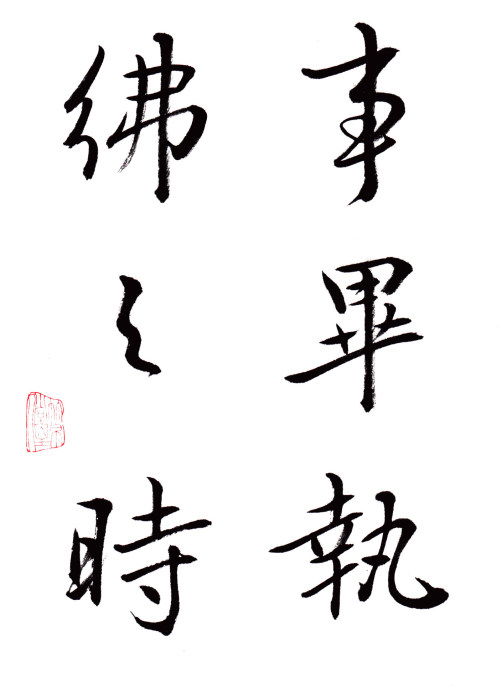 事畢執
彿之時